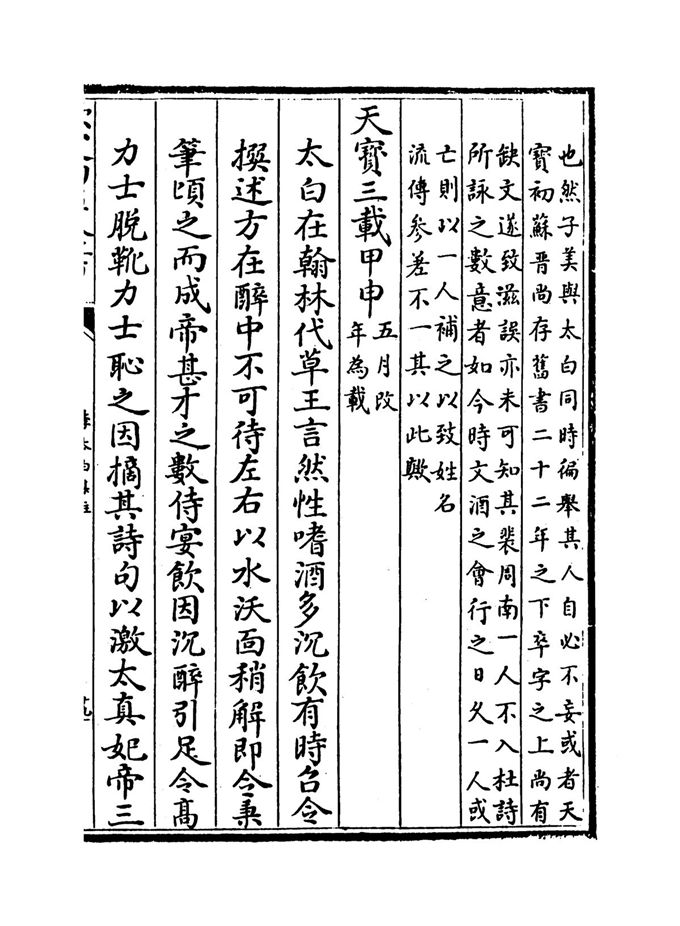 也然子美與太白同時徧舉其人自必不妄或者天
寳初蘇晋尚存舊書二十二年之下卒字之上尚有
缺文遂致滋誤亦未可知其裴周南一人不入杜詩
所詠之數意者如今時文酒之㑹行之日乆一人或
亡則以一人補之以致姓名
流傳參差不一其以此歟
天寳三載甲申五月改
年為載
太白在翰林代草王言然性嗜酒多沉飲有時召令
撰述方在醉中不可待左右以水沃面稍解即令秉
筆頃之而成帝甚才之數侍宴飲因沉醉引足令髙
力士脱靴力士恥之因摘其詩句以激太真妃帝三
李太白集注